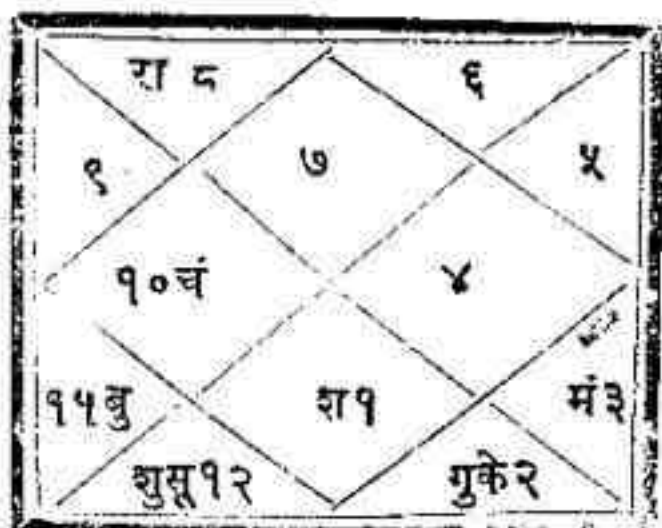 रा ८ ६
९ ७ ५
१०चं ४
१५बु श१ मं३
शुसू१२ गुके२